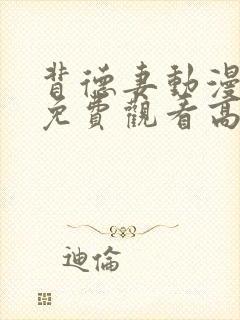 背德妻動漫
免費觀看高
迪倫